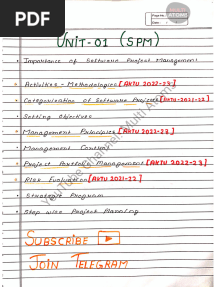 PDF
Page No.
Date
UNIT-01 (SPM)
• Importance of Software Project Management
• Activities - Methodologies [AKTU 2022-23]
• Categorization of Software Projects [AKTU-2021-22]
• Setting Objectives
• Management Principles [AKTU 2022-23]
• Management Control
• Project Portfolio Management [AKTU 2022-23]
• Risk Evaluation [AKTU 2021-22]
• Strategic Program
• Step wise Project Planning
YouTube Channel: Multi Atoms
SUBSCRIBE
JOIN TELEGRAM